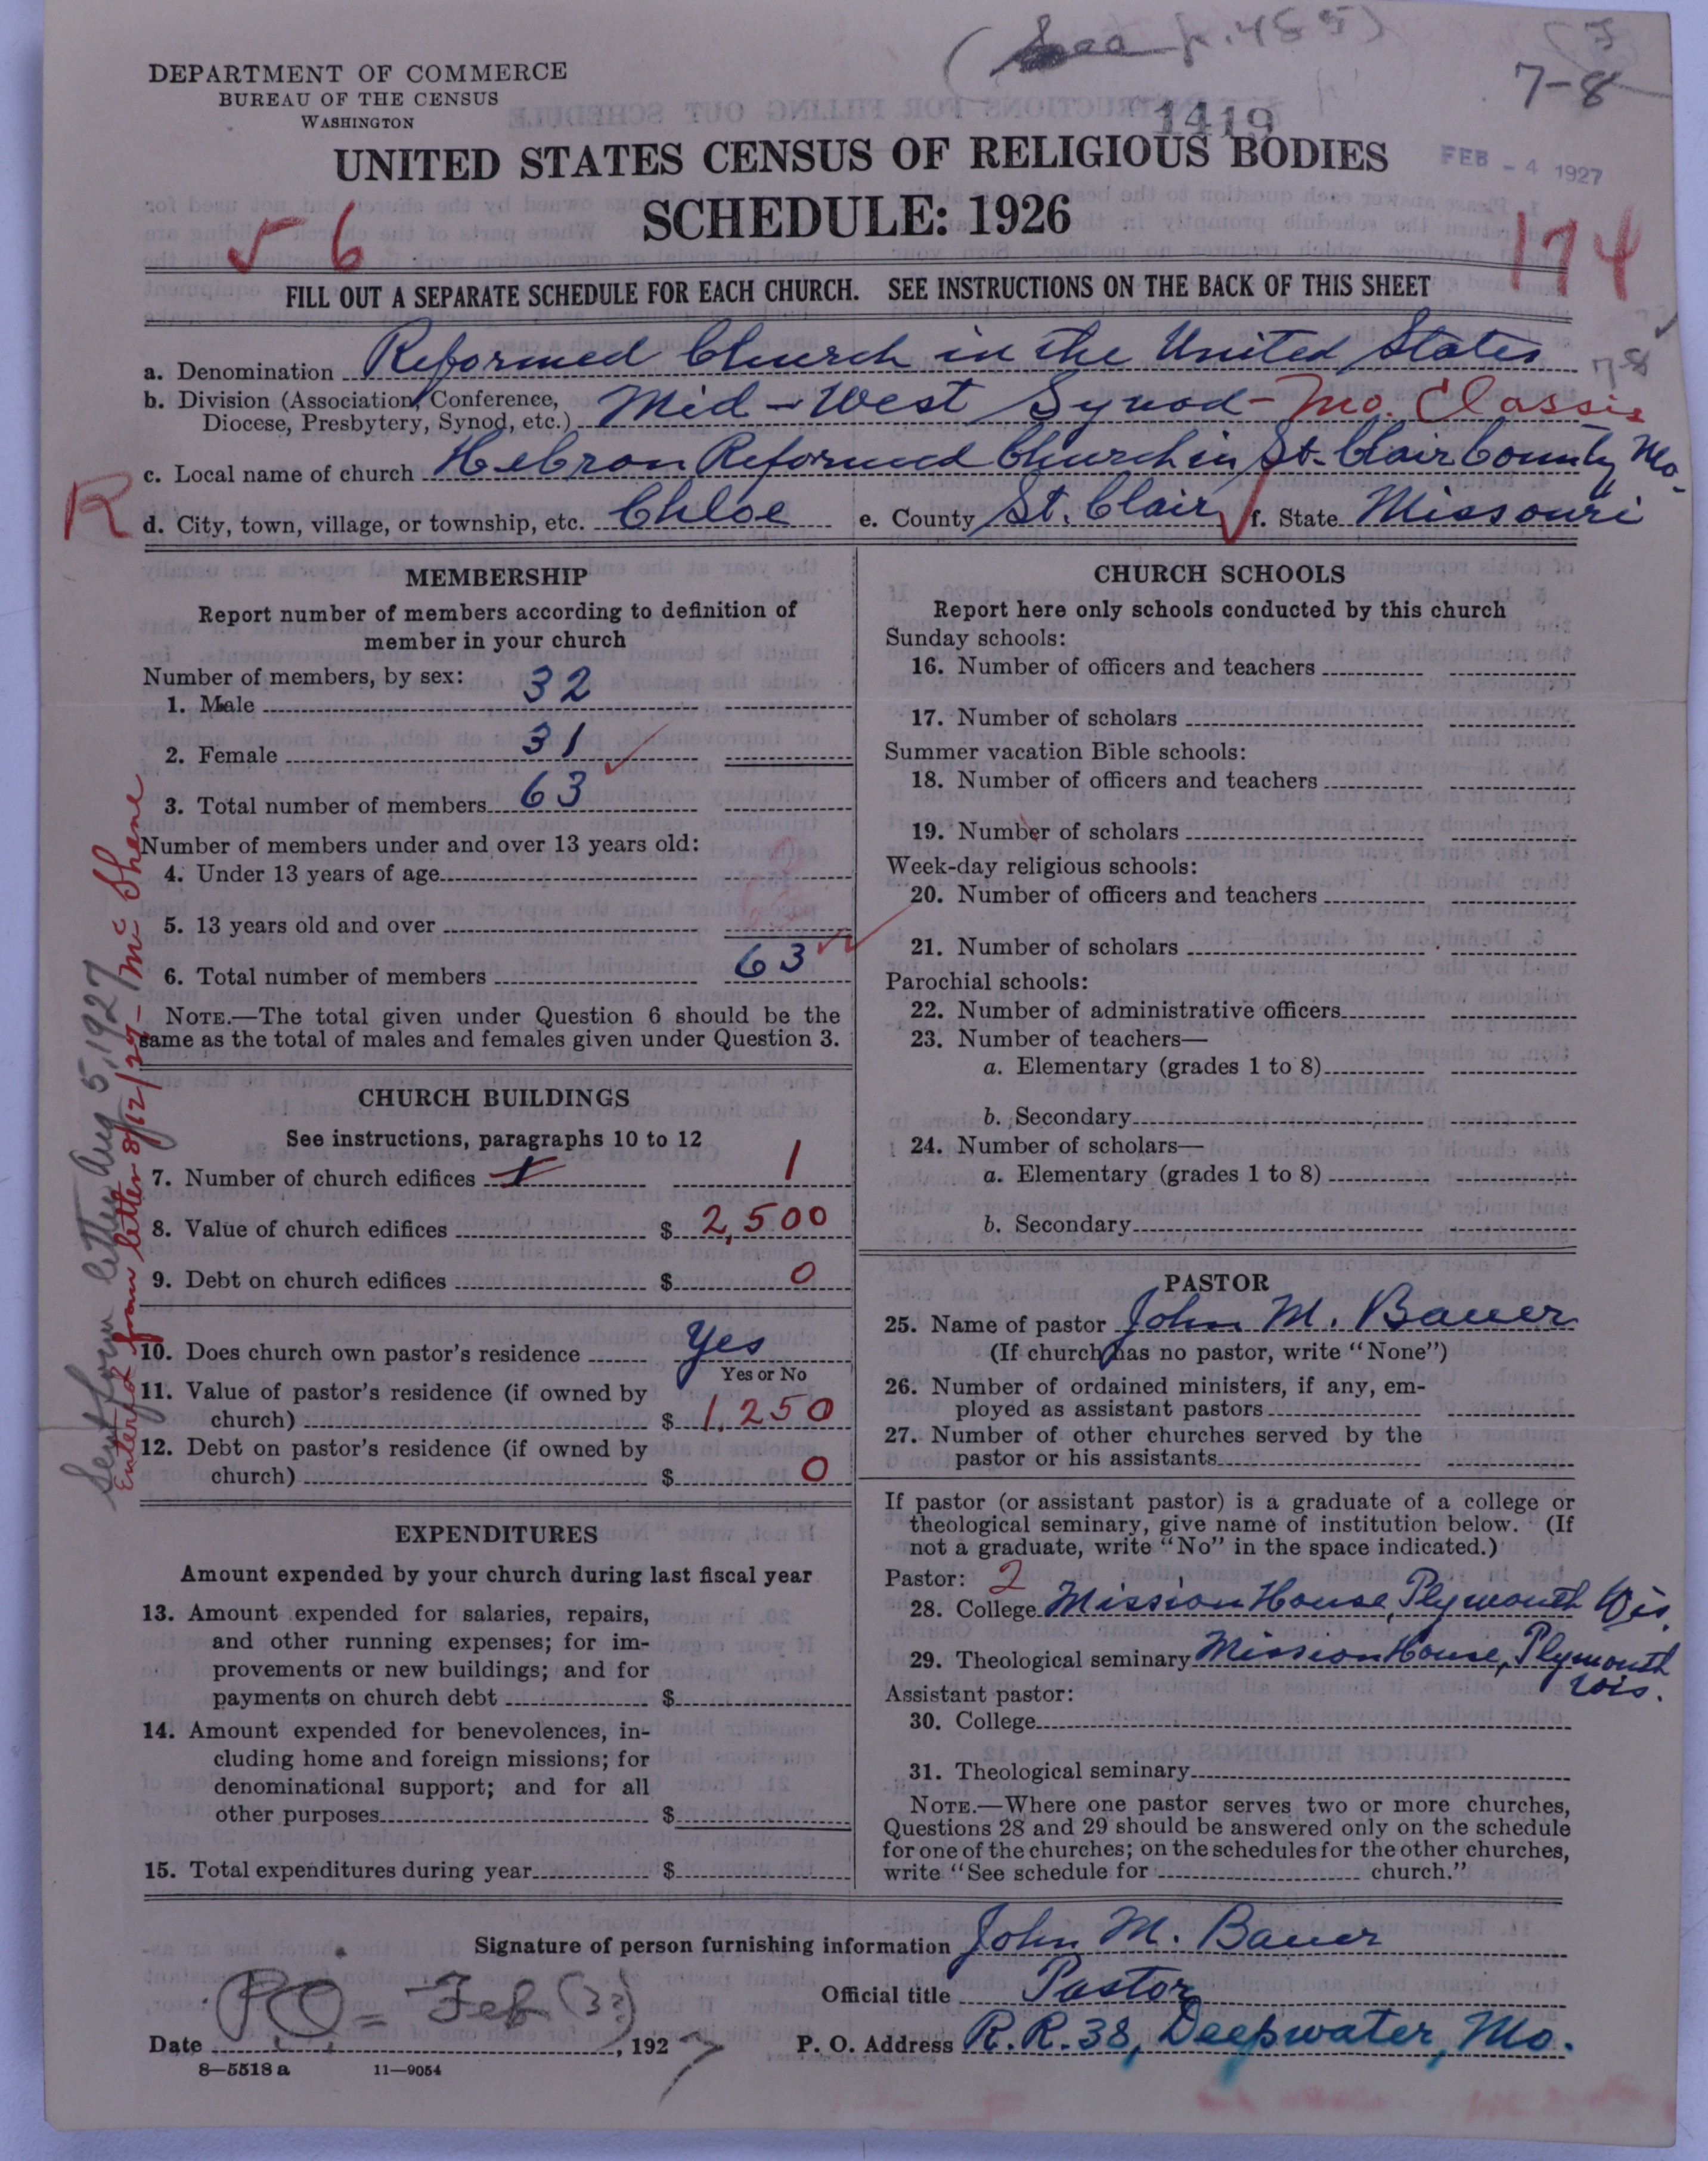 (See p. 455)
7-8
DEPARTMENT OF COMMERCE
BUREAU OF THE CENSUS
WASHINGTON
1419
UNITED STATES CENSUS OF RELIGIOUS BODIES
FEB - 4 1927
SCHEDULE: 1926
174
6
FILL OUT A SEPARATE SCHEDULE FOR EACH CHURCH. SEE INSTRUCTIONS ON THE BACK OF THIS SHEET
a. Denomination Reformed Church in the United States
7-8
b. Division (Association, Conference, Diocese, Presbytery, Synod, etc.) Mid-West Synod - Mo. Classis
c. Local name of church Hebron Reformed Church in St. Clair County Mo.
R
d. City, town, village, or township, etc. Chloe e. County St. Clair f. State Missouri
MEMBERSHIP
Report number of members according to definition of
member in your church
Number of members, by sex:
1. Male 32
2. Female 31
3. Total number of members 63
Number of members under and over 13 years old:
4. Under 13 years of age
5. 13 years old and over
6. Total number of members 63
NOTE.—The total given under Question 6 should be the
same as the total of males and females given under Question 3.
CHURCH BUILDINGS
See instructions, paragraphs 10 to 12
7. Number of church edifices 1 1
8. Value of church edifices $ 2,500
9. Debt on church edifices $ 0
10. Does church own pastor's residence Yes
Yes or No
11. Value of pastor's residence (if owned by
church) $ 1,250
12. Debt on pastor's residence (if owned by
church) $ 0
EXPENDITURES
Amount expended by your church during last fiscal year
13. Amount expended for salaries, repairs,
and other running expenses; for im-
provements or new buildings; and for
payments on church debt $
14. Amount expended for benevolences, in-
cluding home and foreign missions; for
denominational support; and for all
other purposes $
15. Total expenditures during year $
Sent form letter Aug 5, 1927
Entered from letter 8/12/27 - McShene
CHURCH SCHOOLS
Report here only schools conducted by this church
Sunday schools:
16. Number of officers and teachers
17. Number of scholars
Summer vacation Bible schools:
18. Number of officers and teachers
19. Number of scholars
Week-day religious schools:
20. Number of officers and teachers
21. Number of scholars
Parochial schools:
22. Number of administrative officers
23. Number of teachers—
a. Elementary (grades 1 to 8)
b. Secondary
24. Number of scholars—
a. Elementary (grades 1 to 8)
b. Secondary
PASTOR
25. Name of pastor John M. Bauer
(If church has no pastor, write "None")
26. Number of ordained ministers, if any, em-
ployed as assistant pastors
27. Number of other churches served by the
pastor or his assistants
If pastor (or assistant pastor) is a graduate of a college or
theological seminary, give name of institution below. (If
not a graduate, write "No" in the space indicated.)
Pastor: 2
28. College Mission House, Plymouth Wis.
29. Theological seminary Mission House, Plymouth
Wis.
Assistant pastor:
30. College
31. Theological seminary
NOTE.—Where one pastor serves two or more churches,
Questions 28 and 29 should be answered only on the schedule
for one of the churches; on the schedules for the other churches,
write "See schedule for church."
Signature of person furnishing information John M. Bauer
Official title Pastor
PO = Feb (3?)
Date , 1927 P. O. Address R.R. 38, Deepwater, Mo.
8—5518 a 11—9054